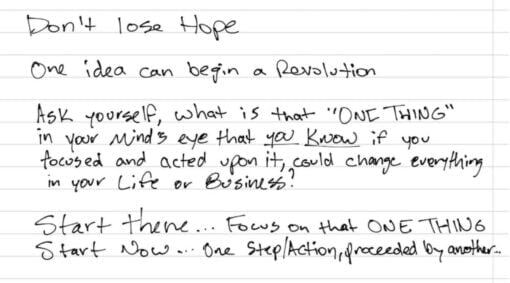 Don't lose Hope
One idea can begin a Revolution
Ask yourself, what is that "ONE THING"
in your mind's eye that you know if you
focused and acted upon it, could change everything
in your Life or Business?
Start there... Focus on that ONE THING
Start Now... One Step/Action, proceeded by another...